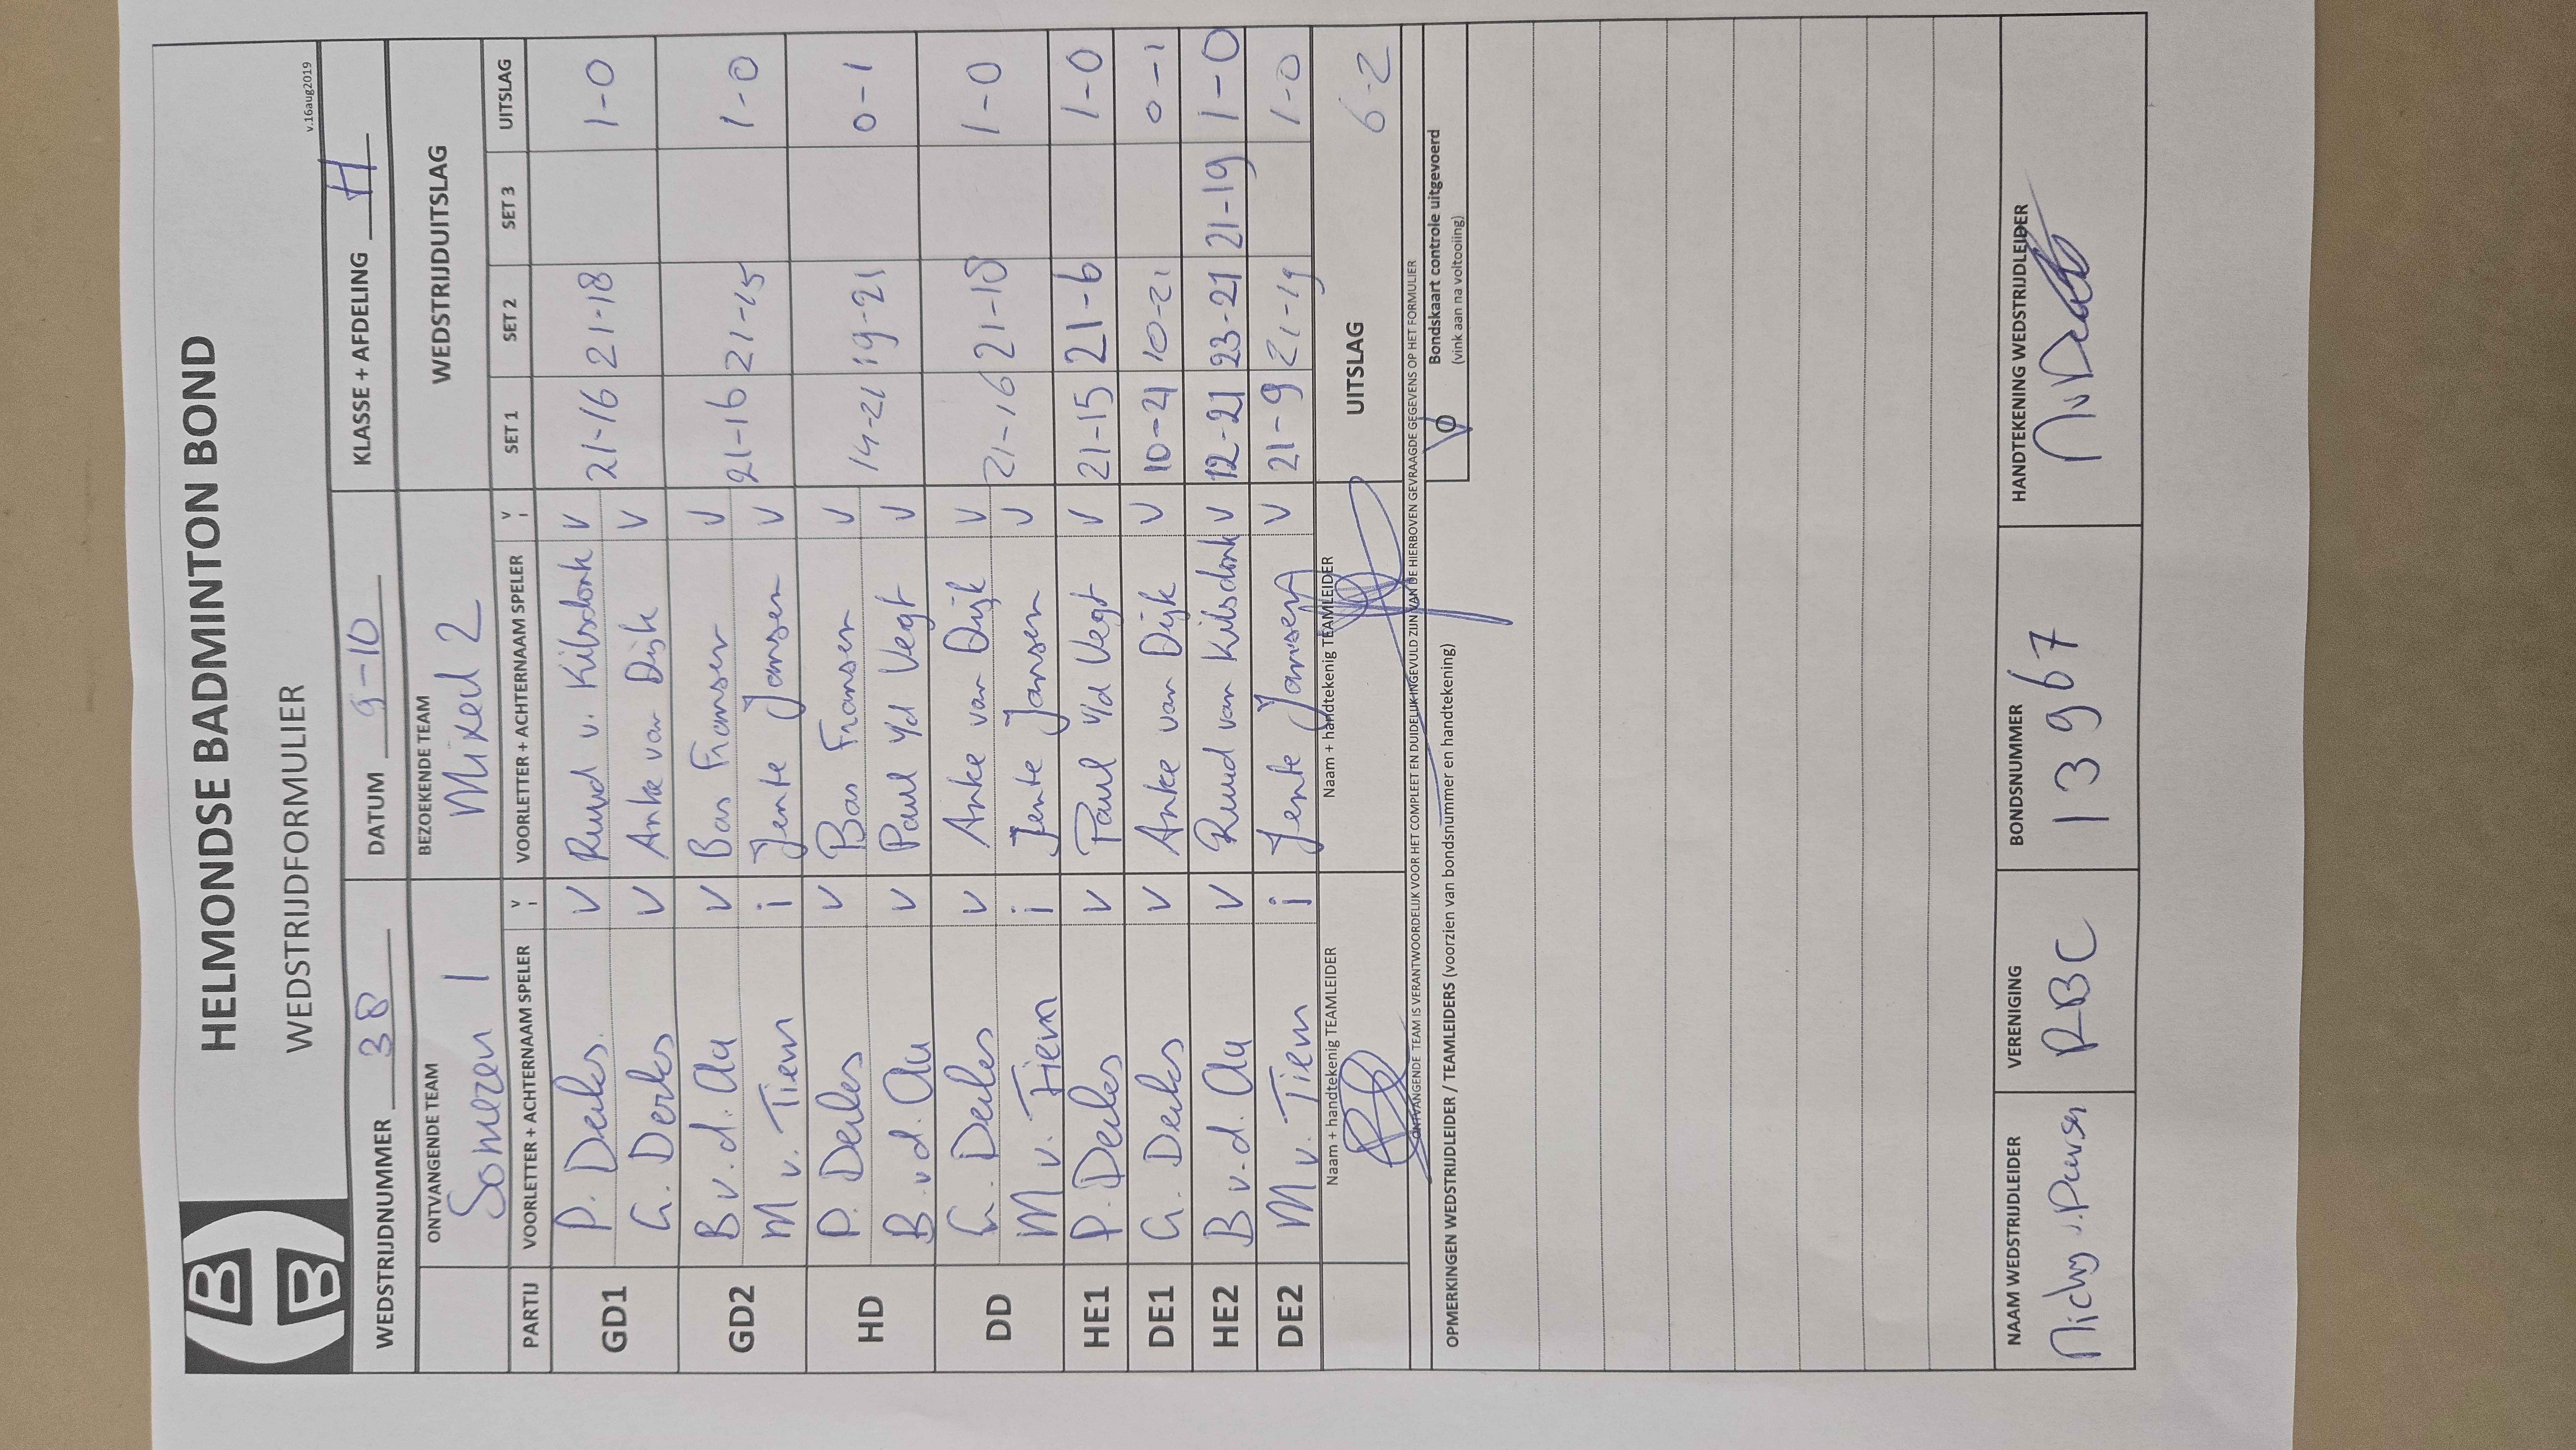 HELMONDSE BADMINTON BOND
WEDSTRIJDFORMULIER
v.16aug2019
WEDSTRIJDNUMMER 38 DATUM 9-10 KLASSE + AFDELING H
ONTVANGENDE TEAM BEZOEKENDE TEAM WEDSTRIJDUITSLAG
Someren 1 Mixed 2
PARTIJ VOORLETTER + ACHTERNAAM SPELER v i VOORLETTER + ACHTERNAAM SPELER v i SET 1 SET 2 SET 3 UITSLAG
GD1 P. Derks V Ruud v. Kilsdonk V 21-16 21-18 1-0
G. Derks V Anke van Dijk V
GD2 B v. d. Aa V Bas Fransen V 21-16 21-15 1-0
M v. Tiem i Jente Jansen V
HD P. Derks V Bas Fransen V 14-21 19-21 0-1
B. vd. Aa V Paul v/d Vegt V
DD G. Derks V Anke van Dijk V 21-16 21-18 1-0
M v. Tiem i Jente Jansen V
HE1 P. Derks V Paul v/d Vegt V 21-15 21-6 1-0
DE1 G. Derks V Anke van Dijk V 10-21 10-21 0-1
HE2 B v. d. Aa V Ruud van Kilsdonk V 12-21 23-21 21-19 1-0
DE2 M v. Tiem i Jente Jansen V 21-9 21-19 1-0
Naam + handtekenig TEAMLEIDER Naam + handtekenig TEAMLEIDER UITSLAG 6-2
ONTVANGENDE TEAM IS VERANTWOORDELIJK VOOR HET COMPLEET EN DUIDELIJK INGEVULD ZIJN VAN DE HIERBOVEN GEVRAAGDE GEGEVENS OP HET FORMULIER
OPMERKINGEN WEDSTRIJDLEIDER / TEAMLEIDERS (voorzien van bondsnummer en handtekening)
Bondskaart controle uitgevoerd
(vink aan na voltooiing)
NAAM WEDSTRIJDLEIDER VERENIGING BONDSNUMMER HANDTEKENING WEDSTRIJDLEIDER
RBC 13967